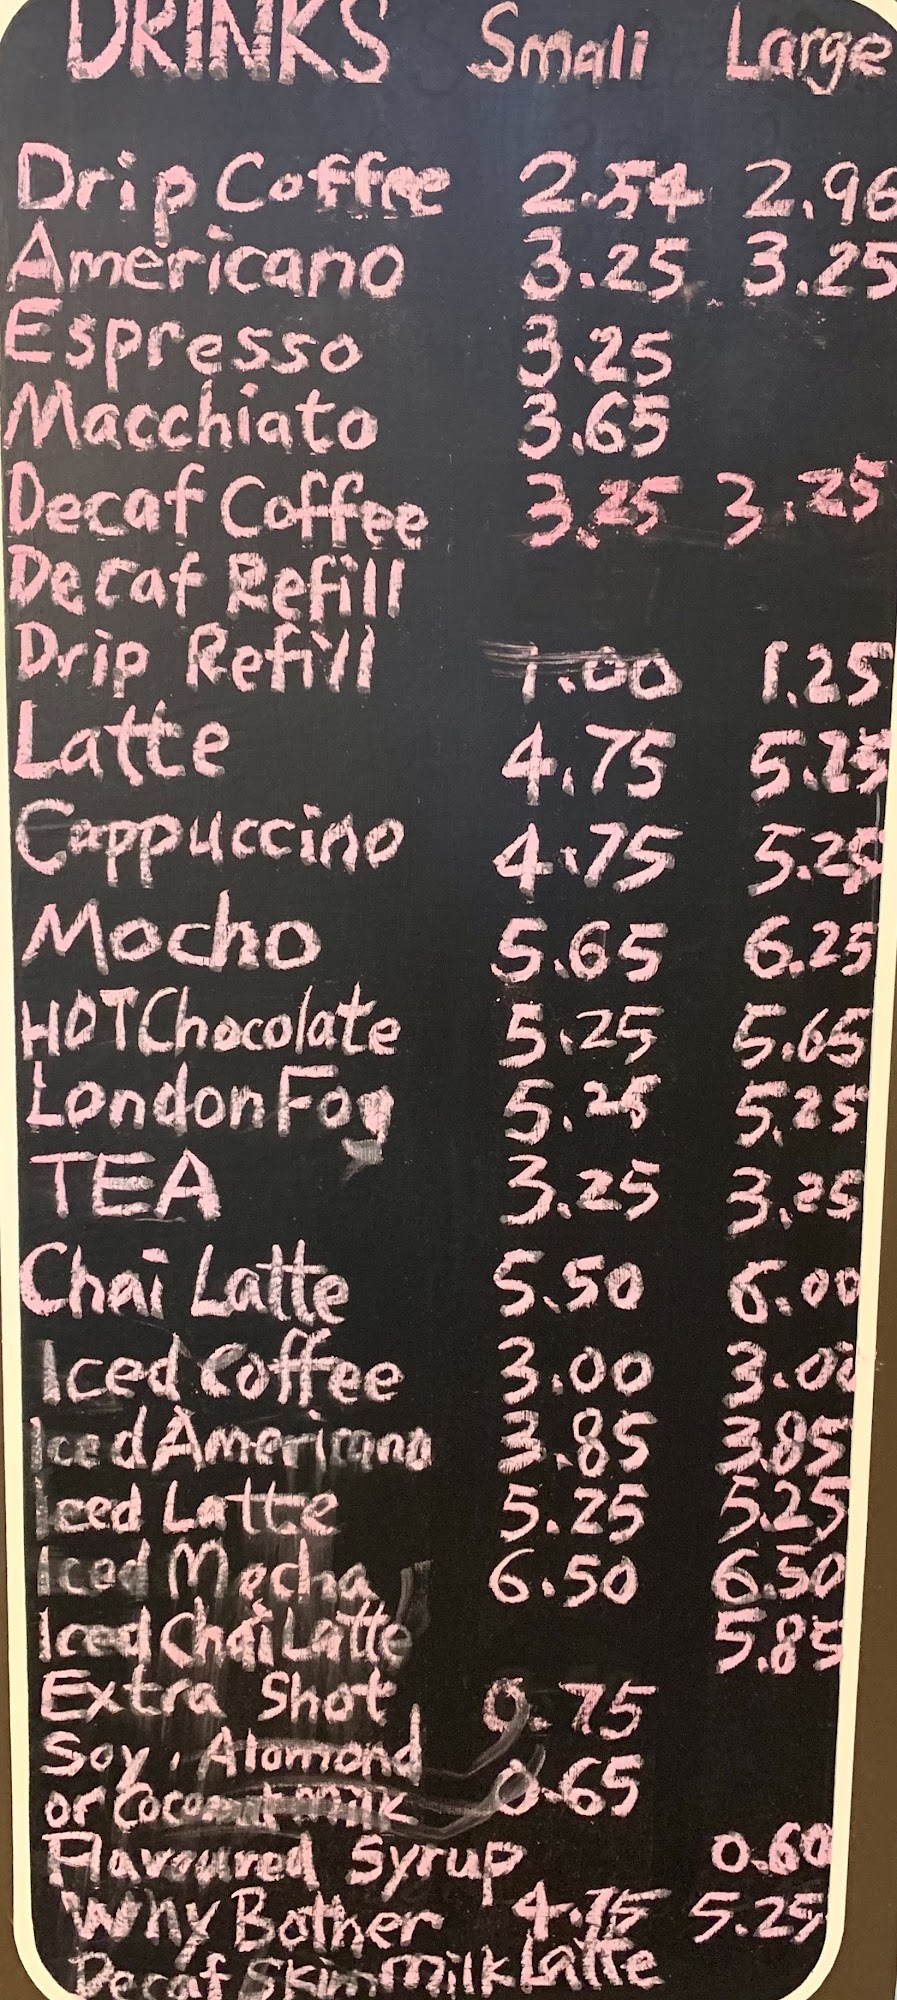 DRINKS Small Large
Drip Coffee 2.54 2.96
Americano 3.25 3.25
Espresso 3.25
Macchiato 3.65
Decaf Coffee 3.25 3.25
Decaf Refill
Drip Refill 1.00 1.25
Latte 4.75 5.25
Cappuccino 4.75 5.25
Mocho 5.65 6.25
HOT Chocolate 5.25 5.65
London Fog 5.25 5.25
TEA 3.25 3.25
Chai Latte 5.50 6.00
Iced Coffee 3.00 3.00
Iced Americano 3.85 3.85
Iced Latte 5.25 5.25
Iced Mocha 6.50 6.50
Iced Chai Latte 5.85
Extra Shot 0.75
Soy, Alomond
or Coconut milk 0.65
Flavoured Syrup 0.60
Why Bother 4.75 5.25
Decaf Skim milk Latte